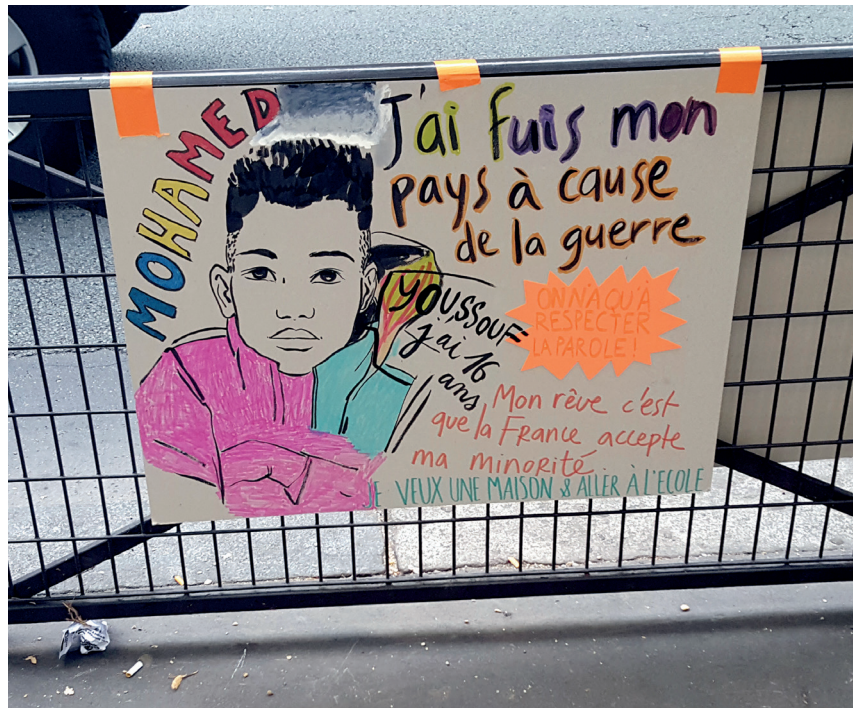 MOHAMED
J'ai fuis mon
pays à cause
de la guerre
YOUSSOUF
j'ai 16
ans
ON N'A QU'À
RESPECTER
LA PAROLE !
Mon rêve c'est
que la France accepte
ma minorité.
JE VEUX UNE MAISON & ALLER À L'ECOLE